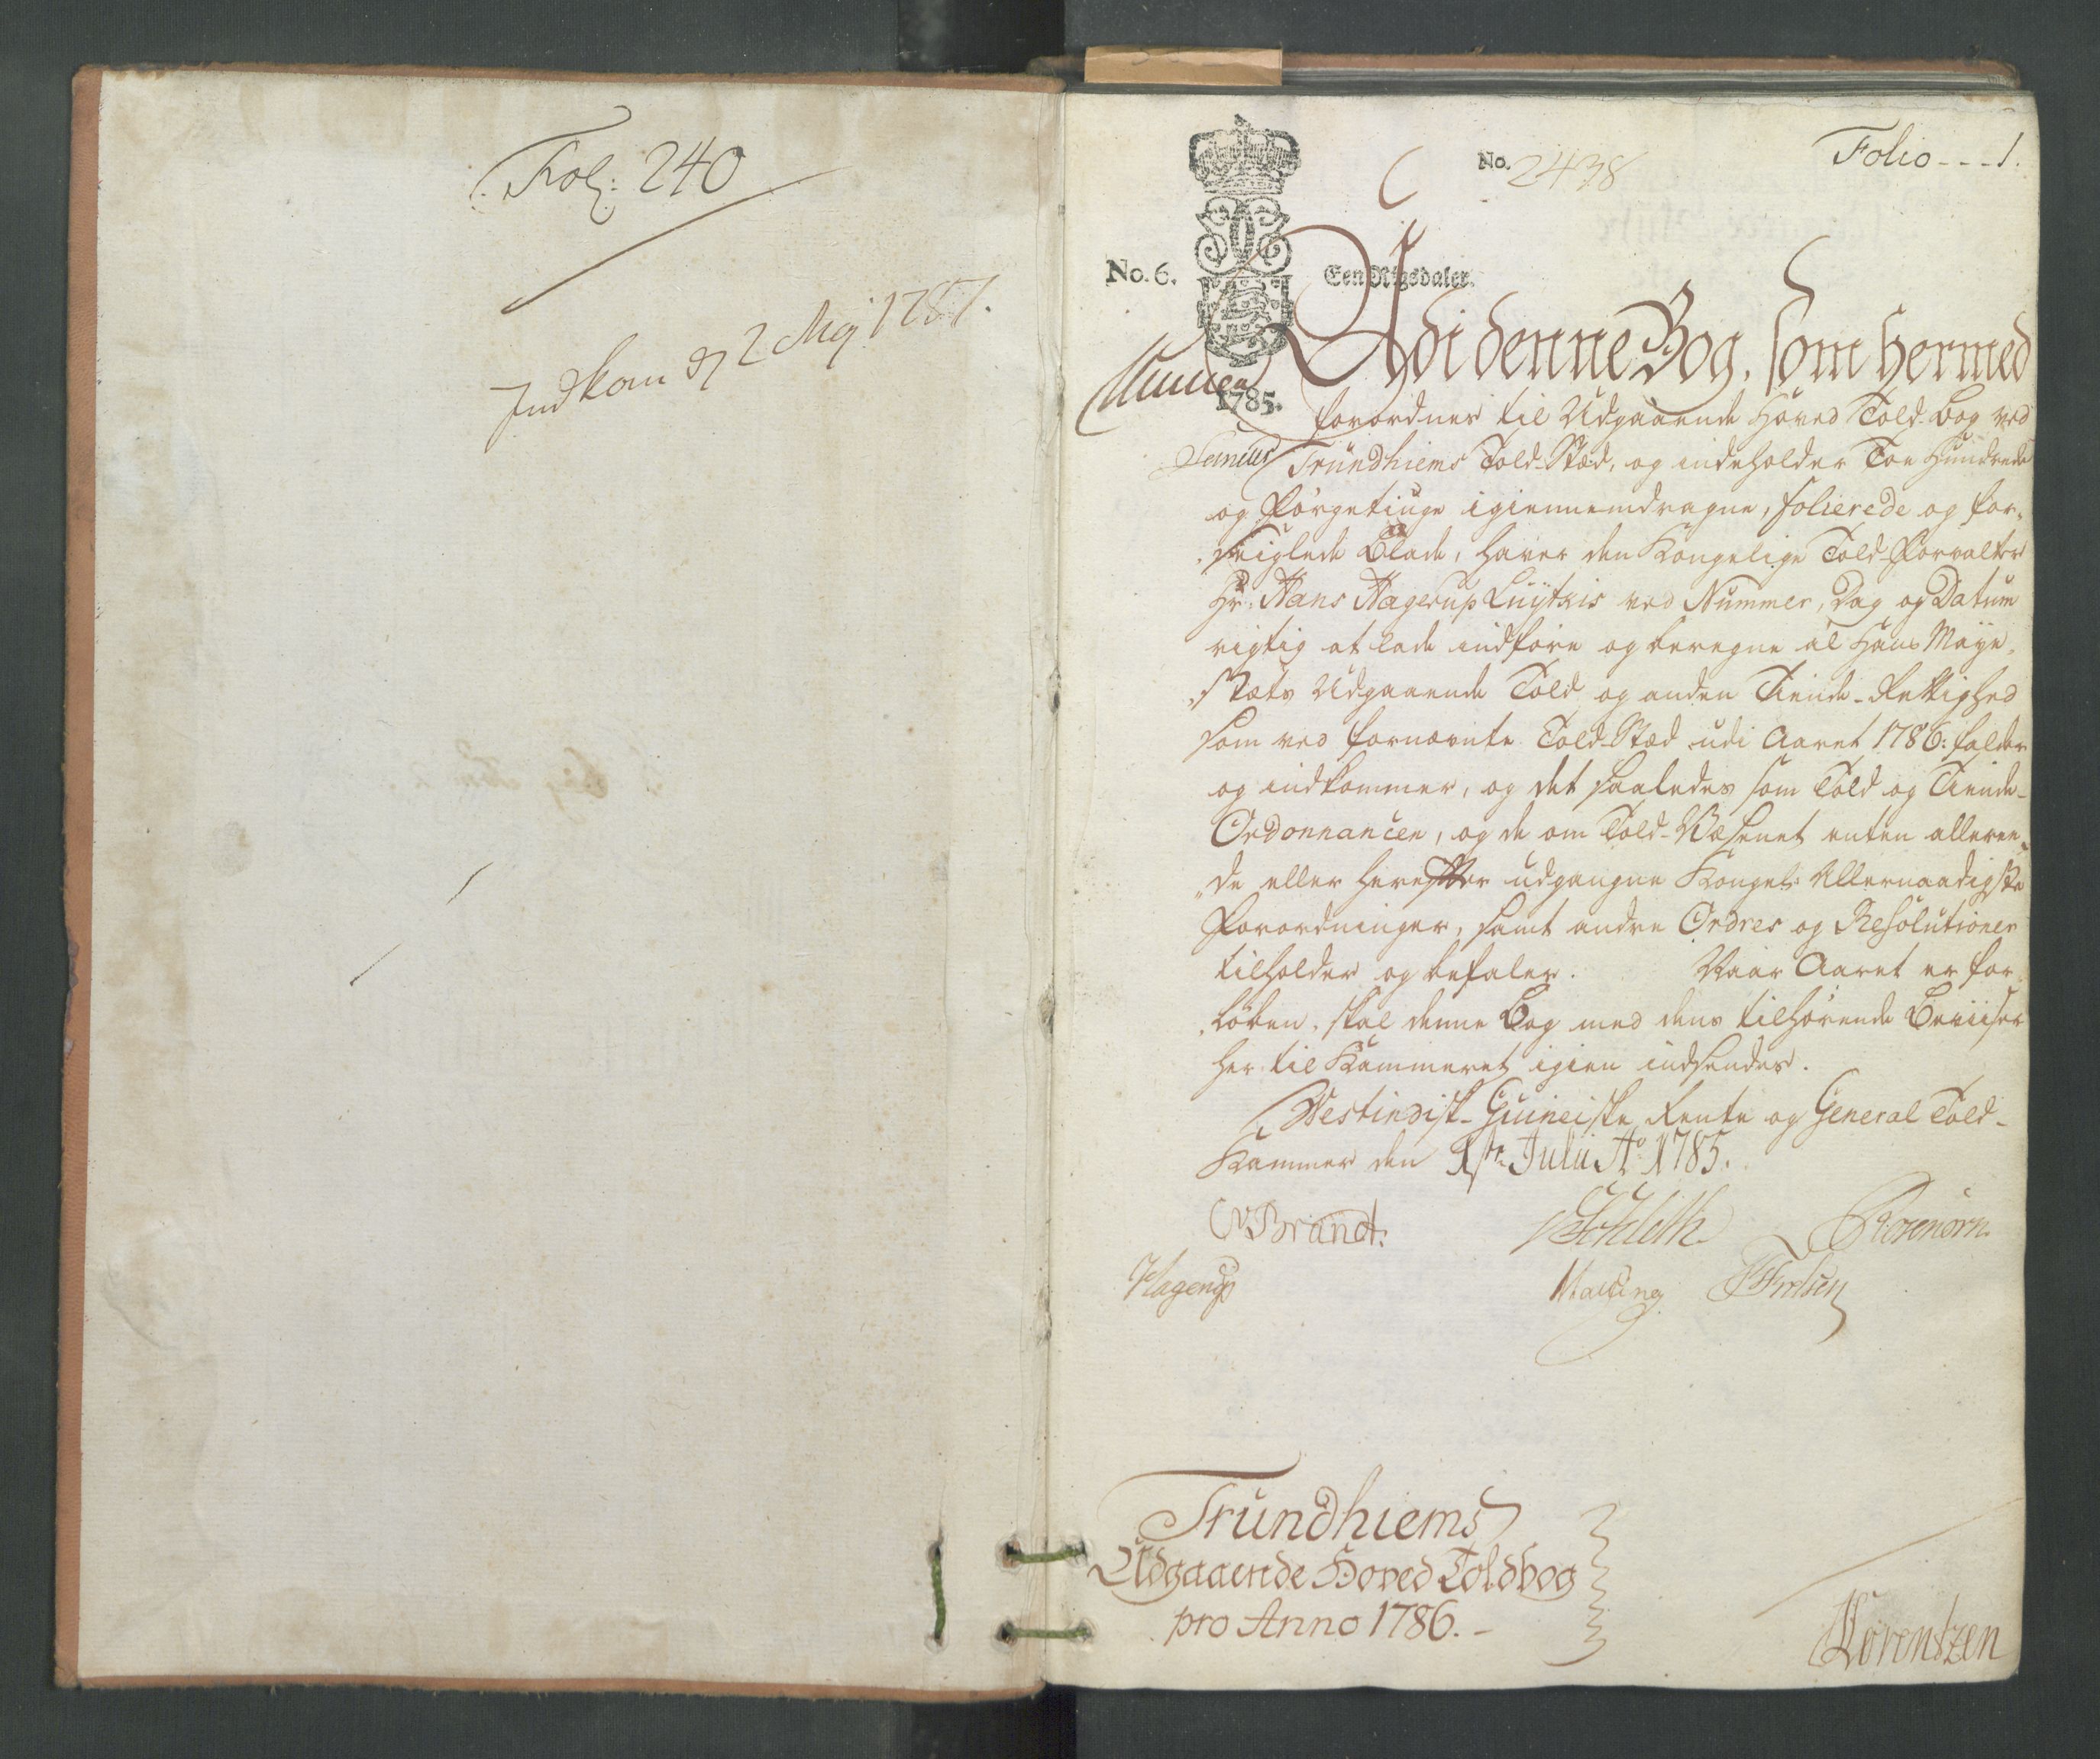 Fol: 240
Indkom d 2 Maj 1787.
Folio - - - 1.
No. 2438
No. 6.
Een Rigsdaler.
1785.
Udi denne Bog, som hermed
forordnes til Udgaaende Hoved Told-Bog ved
Trundhiems Told-Stæd, og indeholder Toe Hundrede
og Førgetiuge igiennemdragne, folierede og for-
seiglede Blade, haver den Kongelige Told-Forvalter
Hr: Hans Hagerup Luÿtkis ved Nummer, Dag og Datum
rigtig at lade indføre og beregne al Hans Maye-
stæts Udgaaende Told og anden Tiende-Rettighed
som ved fornævnte Told-Stæd udi Aaret 1786: falder
og indkommer, og det saaledes som Told og Tiende-
Ordonnancen, og de om Told-Væsenet enten alleree-
de eller herefter udgangne Kongel: Allernaadigste
Forordninger, samt andre Ordres og Resolutioner
tilholder og befaler. Naar Aaret er for-
løben, skal denne Bog med dens tilhørende Beviiser
her til Kammeret igien indsendes.
Westindisk-Guineiske Rente og General Told-
Kammer den 1ste Julii Ao 1785.
Brandt.
Schleth
Rosenørn
Hagerup
Malling
Trundhiems
Udgaaende Hoved Toldbog
pro Anno 1786. -
Lorentzen